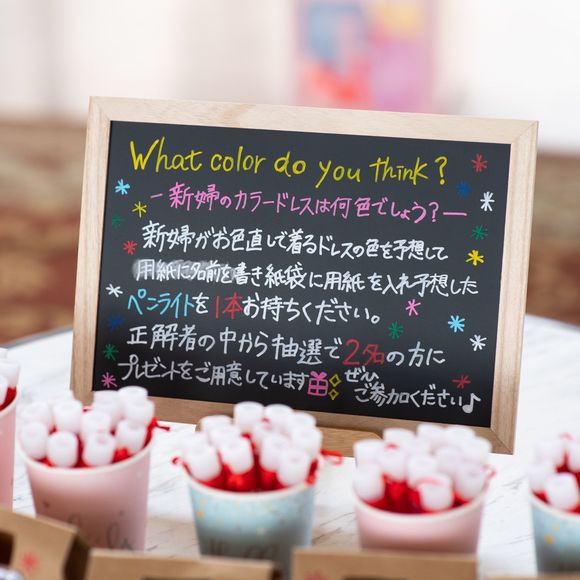 What color do you think?
-新婦のカラードレスは何色でしょう?-
新婦がお色直しで着るドレスの色を予想して
用紙に名前を書き紙袋に用紙を入れ予想した
ペンライトを1本お持ちください。
正解者の中から抽選で2名の方に
プレゼントをご用意しています ぜひ
ご参加ください♪